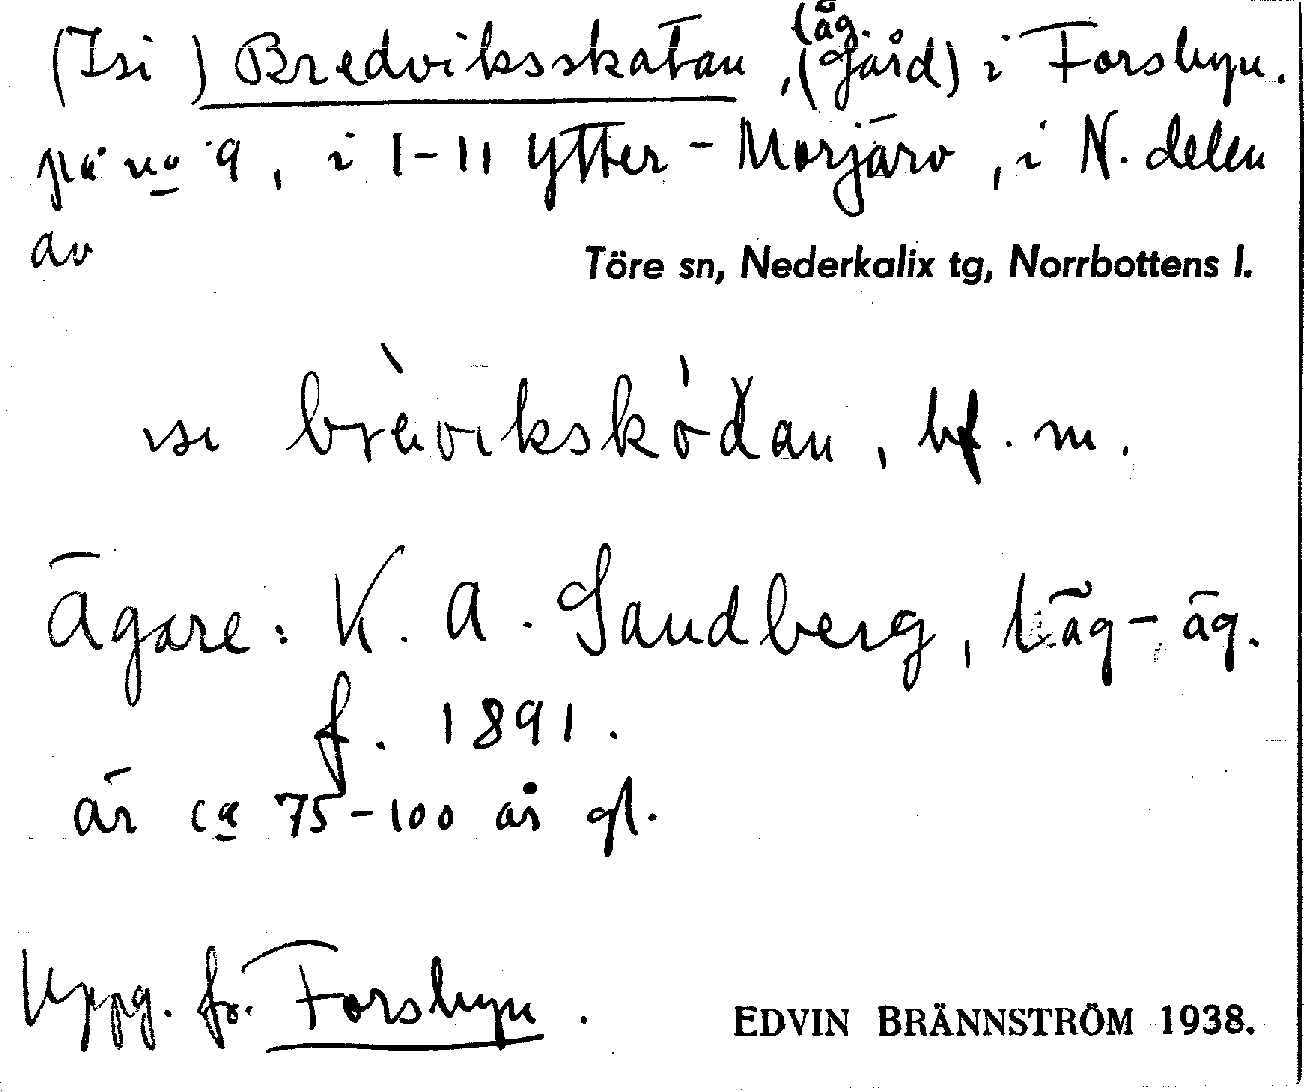 (Isi) Bredviksskatan, (läg. (Gård) i Forsbyn.
på no 9, i 1-11 Ytter-Morjärv, i N. delen
av
Töre sn, Nederkalix tg, Norrbottens l.
ısı brèvikskòdan, bf. m.
Ägare: K. A. Sandberg, läg-äg.
f. 1891.
är ca 75-100 år gl.
Uppg. fr. Forsbyn.
EDVIN BRÄNNSTRÖM 1938.